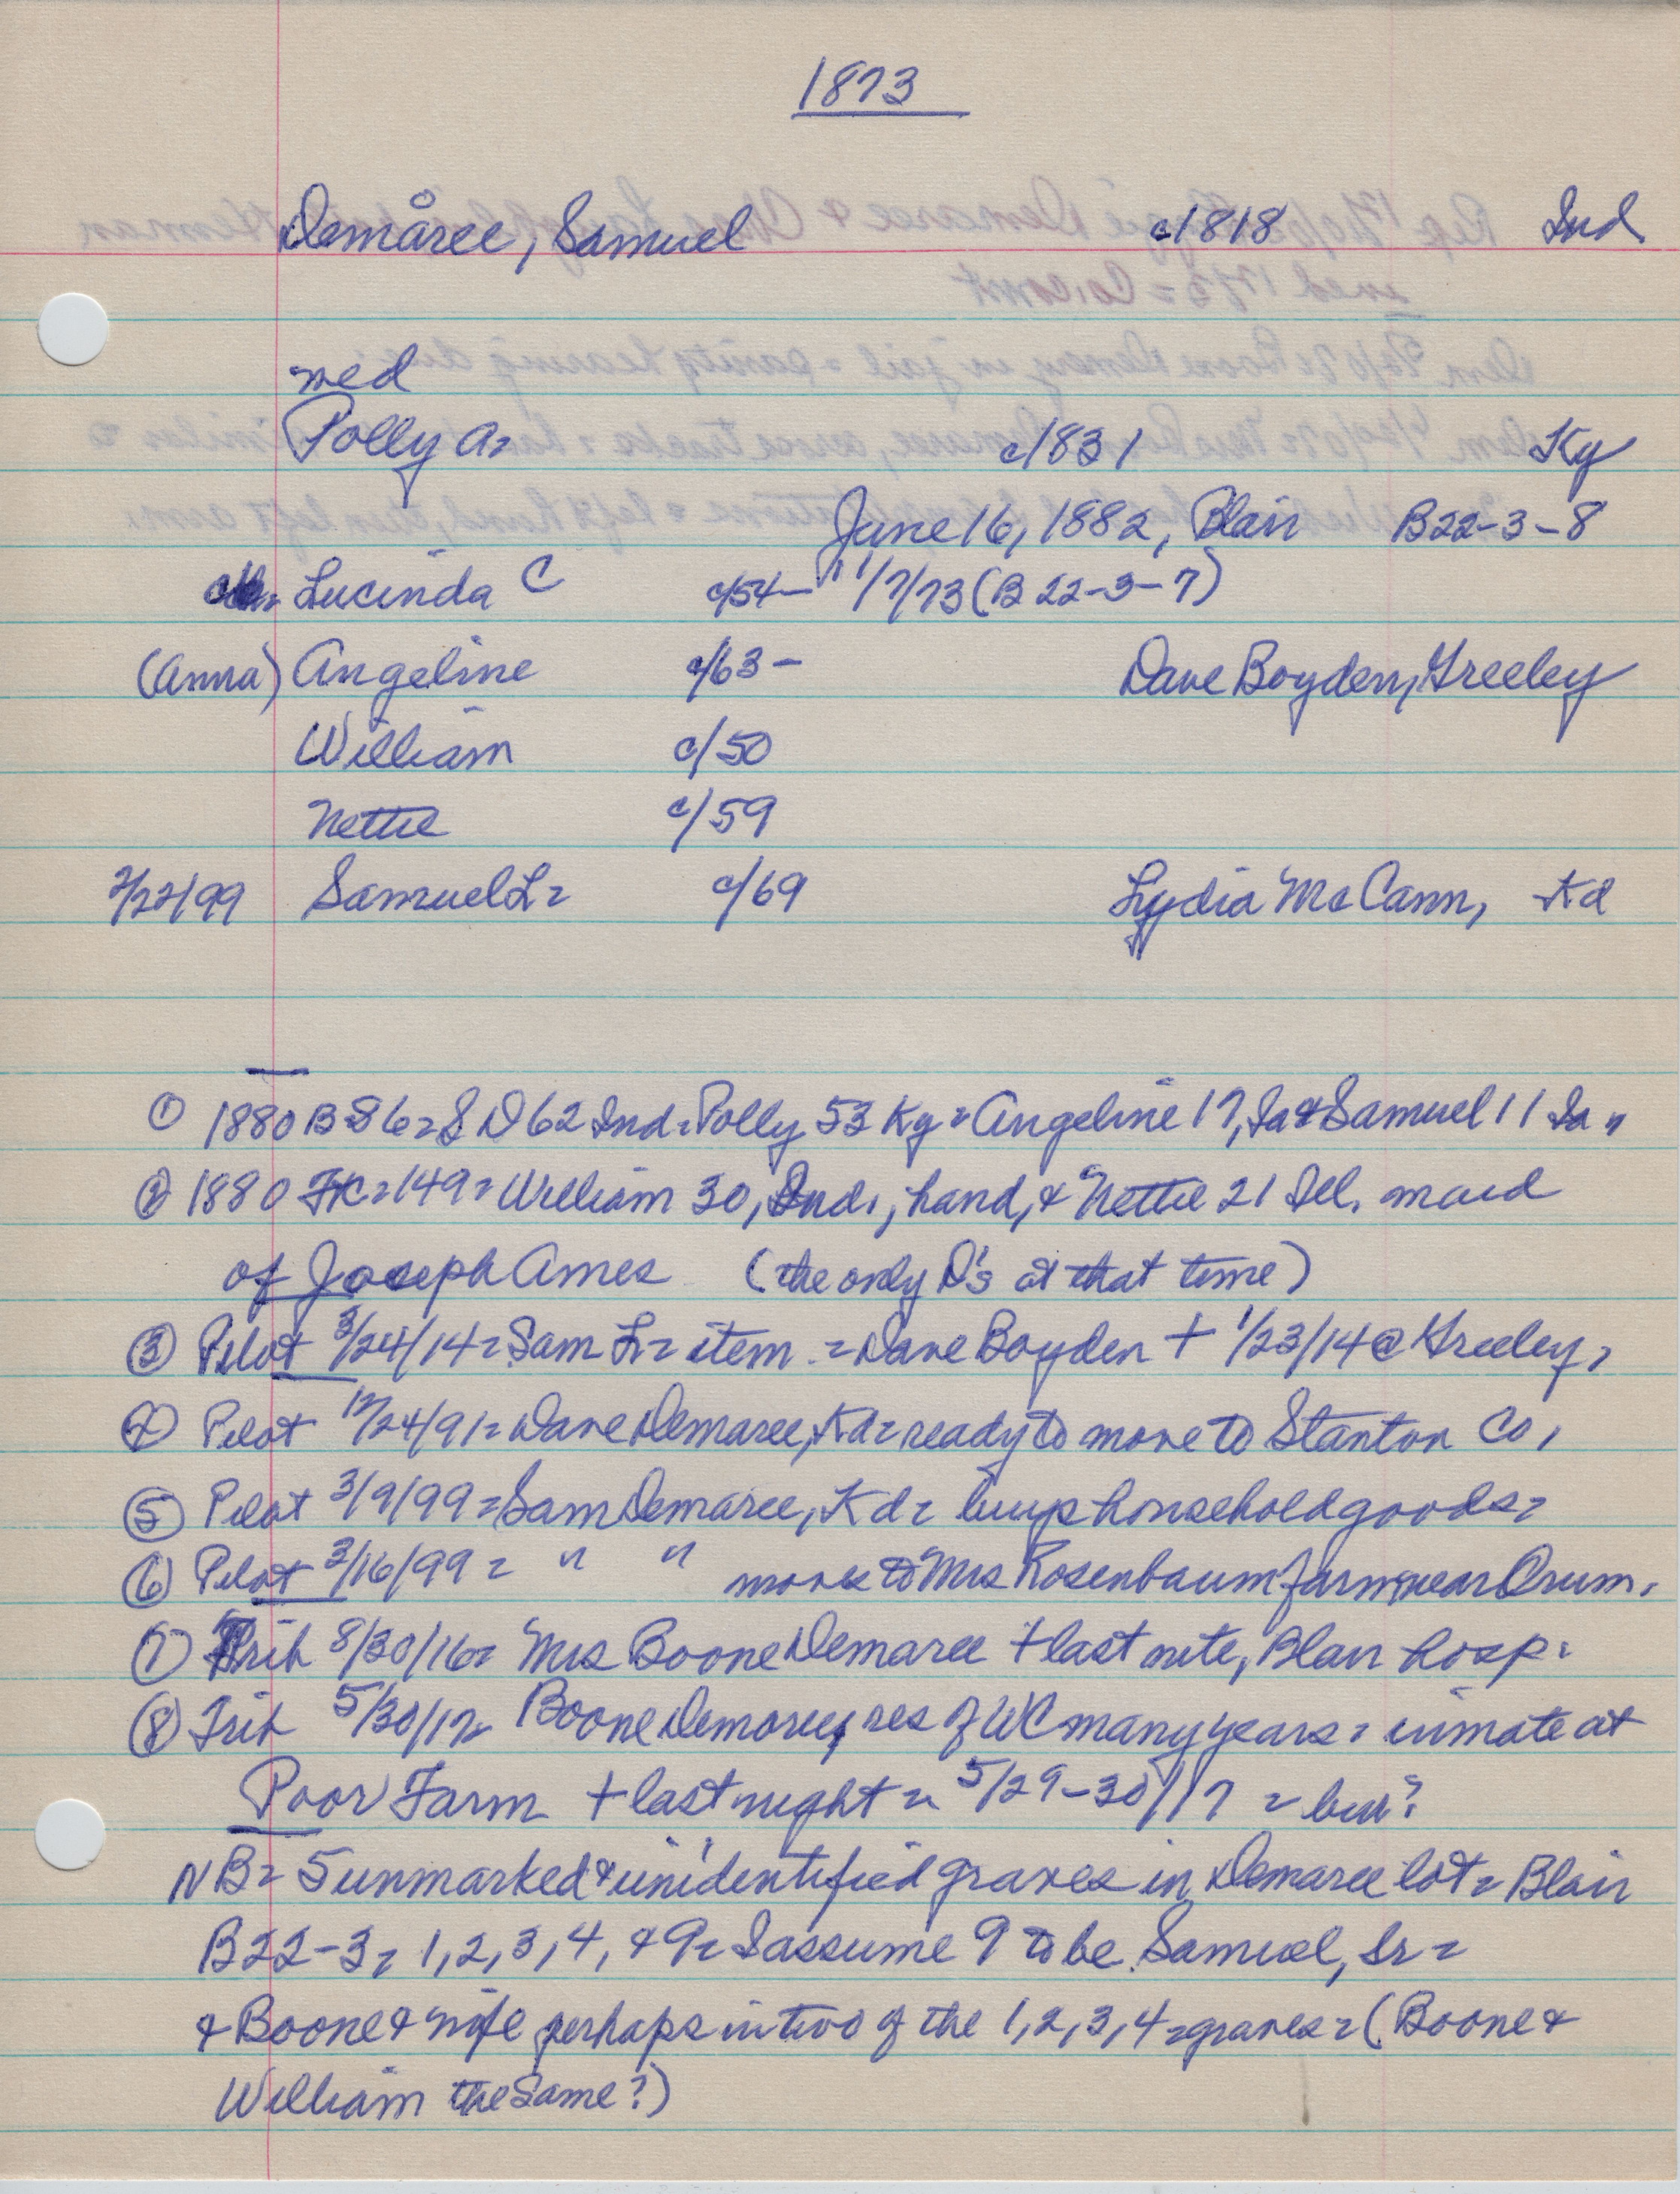 1873
Demaree, Samuel c1818 Ind
med
Polly A= c/1831 Ky
June 16, 1882, Blair B22-3-8
ch= Lucinda C c/54- 11/7/73 (B 22-3-7)
(Anna) Angeline c/63- Dave Boyden, Greeley
William c/50
Nettie c/59
2/22/99 Samuel L= c/69 Lydia McCann, Kd
① 1880 B 86= S D 62 Ind= Polly 53 Ky= Angeline 17, Ia & Samuel 11 Ia"
② 1880 FC= 149= William 30, Ind., hand, & Nettie 21 Ill. maid
of Joseph Ames (the only D's at that time)
③ Pilot 3/24/14= Sam L= item = Dave Boyden + 1/23/14 @ Greeley=
④ Pilot 12/24/91= Dave Demaree, Kd= ready to move to Stanton Co,
⑤ Pilot 3/9/99= Sam Demaree, Kd= buys household goods=
⑥ Pilot 3/16/99= " " moves to Mrs Rosenbaum farm, near Orum.
⑦ Trib 8/30/16= Mrs Boone Demaree + last nite, Blair hosp=
⑧ Trib 5/30/17= Boone Demorey, res of WC many years= inmate at
Poor Farm + last night = 5/29-30/17 = bur?
NB= 5 unmarked & unidentified graves in Demaree lot= Blair
B22-3= 1,2,3,4, & 9= I assume 9 to be Samuel, Sr=
& Boone & wife perhaps in two of the 1,2,3,4= graves= (Boone &
William the same?)